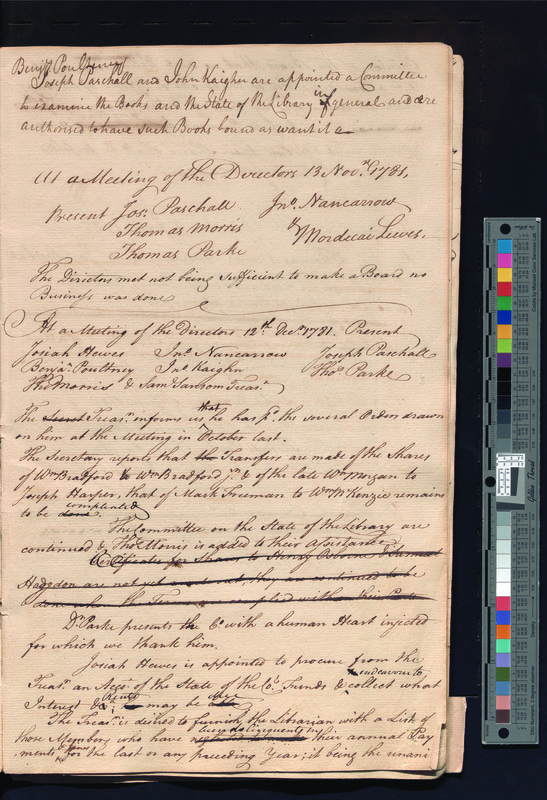 Benj.ª Poultney
Joseph Paschall and John Kaighn are appointed a Committee
to examine the Books and the State of the Library in general and are
authorised to have such Books bound as want it
At a Meeting of the Directors 13 Nov.r 1781,
Present Jos. Paschall Jn.o Nancarrow
Thomas Morris & Mordecai Lewes.
Thomas Parke
The Directors met not being Sufficient to make a Board no
Business was done
At a Meeting of the Directors 12.th Dec.r 1781. Present
Josiah Hewes Jn.o Nancarrow Joseph Paschall
Benja. Poultney Jn.o Kaighn Tho.s Parke
Tho Morris & Sam.l Sansom Treas.r
The Treas.r informs us that he has p.d the several Orders drawn
on him at the Meeting in October last.
The Secretary reports that the Transfers are made of the Shares
of W.m Bradford to W.m Bradford j.r & of the late W.m Morgan to
Joseph Harper, that of Mark Freeman to W.m McKenzie remains
to be done compleated
The Committee on the State of the Library are
continued & Tho.s Morris is added to their assistance
Certificates for Shares to Henry
Hagzden are not yet they are continued to be
done the complied with
D.r Parke presents the C.o with a human Heart injected
for which we thank him.
Josiah Hewes is appointed to procure from the
Treas.r an Acc.t of the State of the Co.s Funds & endeavour to collect what
Interest & Rents may be due
The Treas.r is desired to furnish the Librarian with a List of
those Members who have been delinquents in their annual Pay
ments for the last or any preceding Year; it being the unani
Golden Thread